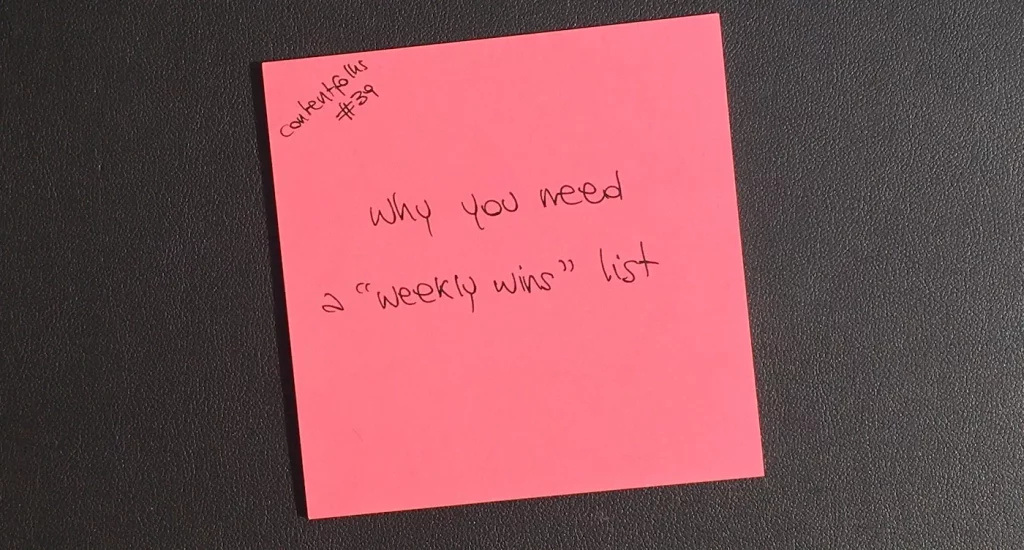 contentfolks
#39
Why you need
a “weekly wins” list